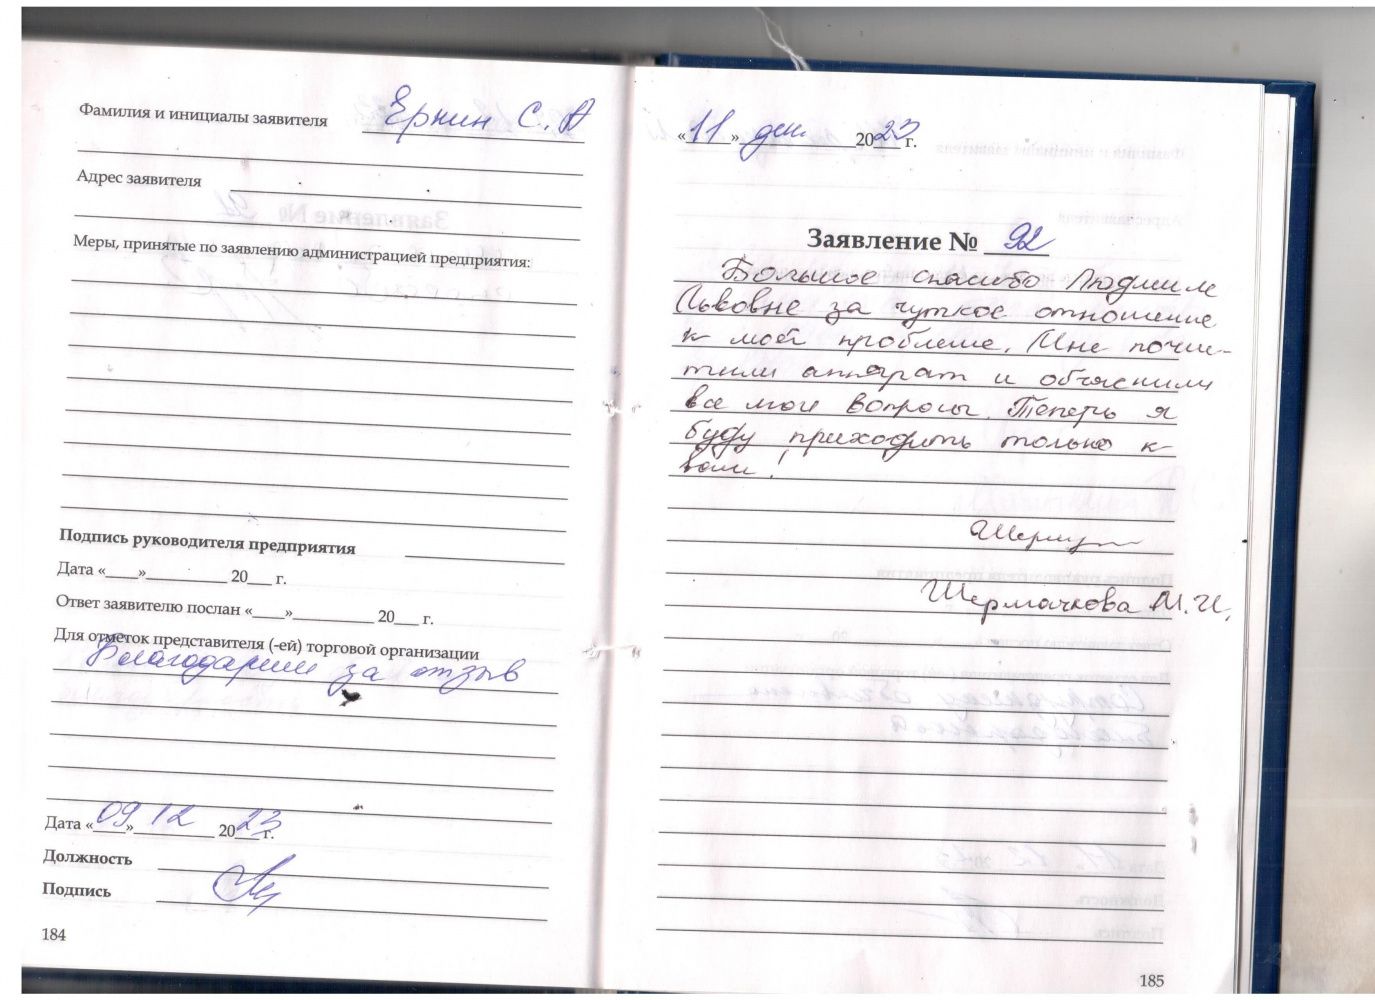 Фамилия и инициалы заявителя Еркин С. А
Адрес заявителя
Меры, принятые по заявлению администрацией предприятия:
Подпись руководителя предприятия
Дата «____»__________ 20___ г.
Ответ заявителю послан «____»__________ 20___ г.
Для отметок представителя (-ей) торговой организации
Благодарим за отзыв
Дата «09» 12 2023 г.
Должность
Подпись
184
«11» дек 2023 г.
Заявление № 92
Большое спасибо Людмиле
Львовне за чуткое отношение
к моей проблеме. Мне почис-
тили аппарат и объяснили
все мои вопросы. Теперь я
буду приходить только к
вам!
Шермачкова М. И.
185